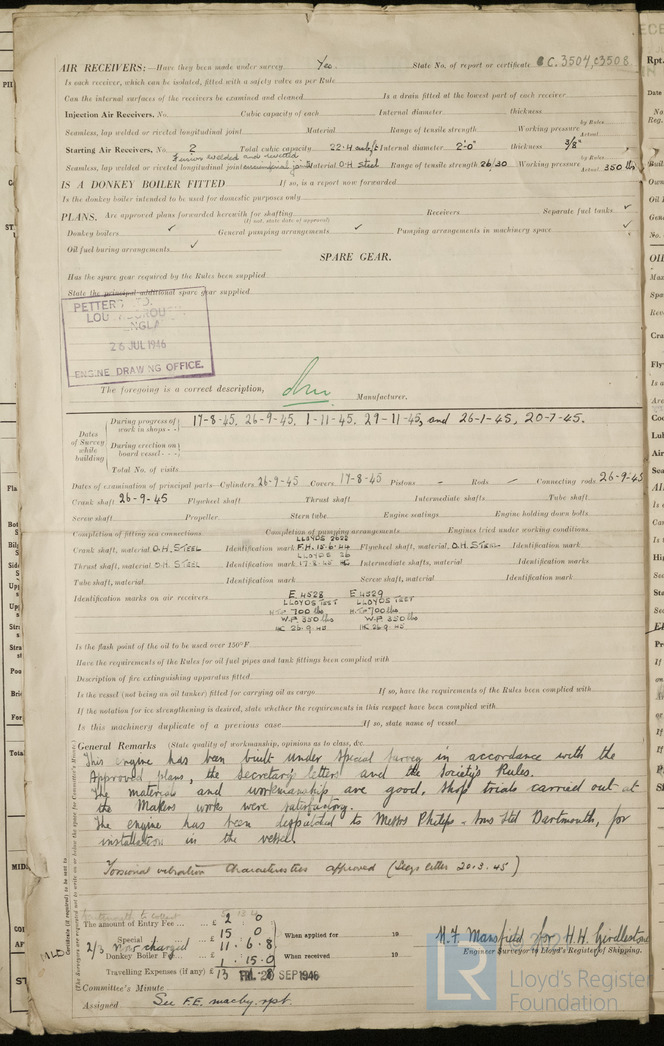 AIR RECEIVERS:—Have they been made under survey Yes. State No. of report or certificate C.3507, C3508
Is each receiver, which can be isolated, fitted with a safety valve as per Rule
Can the internal surfaces of the receivers be examined and cleaned Is a drain fitted at the lowest part of each receiver
Injection Air Receivers, No. Cubic capacity of each Internal diameter thickness
Seamless, lap welded or riveted longitudinal joint Material Range of tensile strength Working pressure by Rules Actual
Starting Air Receivers, No. 2 Total cubic capacity 22.4 cub/ft Internal diameter 2'-0" thickness 3/8"
welded and riveted
Seamless, lap welded or riveted longitudinal joint Material O.H Steel Range of tensile strength 26/30 Working pressure by Rules Actual 350 lbs
IS A DONKEY BOILER FITTED If so, is a report now forwarded
Is the donkey boiler intended to be used for domestic purposes only
PLANS. Are approved plans forwarded herewith for shafting Receivers Separate fuel tanks ✓
(If not, state date of approval)
Donkey boilers ✓ General pumping arrangements ✓ Pumping arrangements in machinery space ✓
Oil fuel burning arrangements ✓
SPARE GEAR.
Has the spare gear required by the Rules been supplied
State the principal additional spare gear supplied
PETTERS LTD.
LOUGHBOROUGH
ENGLA
26 JUL 1946
ENGINE DRAWING OFFICE.
The foregoing is a correct description,
Manufacturer.
Dates of Survey while building
During progress of work in shops - - 17-8-45. 26-9-45. 1-11-45. 29-11-45, and 26-1-45, 20-7-45.
During erection on board vessel - - -
Total No. of visits
Dates of examination of principal parts—Cylinders 26-9-45 Covers 17-8-45 Pistons - Rods - Connecting rods 26-9-45
Crank shaft 26-9-45 Flywheel shaft Thrust shaft Intermediate shafts Tube shaft
Screw shaft Propeller Stern tube Engine seatings Engine holding down bolts
Completion of fitting sea connections Completion of pumping arrangements Engines tried under working conditions
LLOYDS 2622
Crank shaft, material O.H. STEEL Identification mark F.H. 15-6-44 Flywheel shaft, material O.H. STEEL Identification mark
LLOYDS 26
Thrust shaft, material O.H. STEEL Identification mark 17-8-45 Intermediate shafts, material Identification marks
Tube shaft, material Identification mark Screw shaft, material Identification mark
Identification marks on air receivers E 4528 E 4529
LLOYDS TEST LLOYDS TEST
H.T. 700 lbs H.T. 700 lbs
W.P. 350 lbs W.P. 350 lbs
HC 26.9.45 HC 26.9.45
Is the flash point of the oil to be used over 150°F
Have the requirements of the Rules for oil fuel pipes and tank fittings been complied with
Description of fire extinguishing apparatus fitted
Is the vessel (not being an oil tanker) fitted for carrying oil as cargo If so, have the requirements of the Rules been complied with
If the notation for ice strengthening is desired, state whether the requirements in this respect have been complied with
Is this machinery duplicate of a previous case If so, state name of vessel
General Remarks (State quality of workmanship, opinions as to class, &c.
This engine has been built under Special Survey in accordance with the
Approved plans, the Secretary's letters and the Society's Rules.
The material and workmanship are good. Shop trials carried out at
the Makers works were satisfactory.
The engine has been despatched to Messrs Philips & Sons Ltd Dartmouth, for
installation in the vessel.
Torsional vibration characteristics approved (Secy's letter 20.3.45)
The amount of Entry Fee ... £ 2 0
Special £ 15 0 When applied for 19
2/3 Now charged 11 . 6 . 8
Donkey Boiler Fee £ 1 . 15.0 When received 19
Travelling Expenses (if any) £ 13
FRI. 20 SEP 1946
N.F. Mansfield for H.H. Girdlestone
Engineer Surveyor to Lloyd's Register of Shipping.
Committee's Minute
Assigned See F.E. machy. rpt.
LR
Lloyd's Register
Foundation